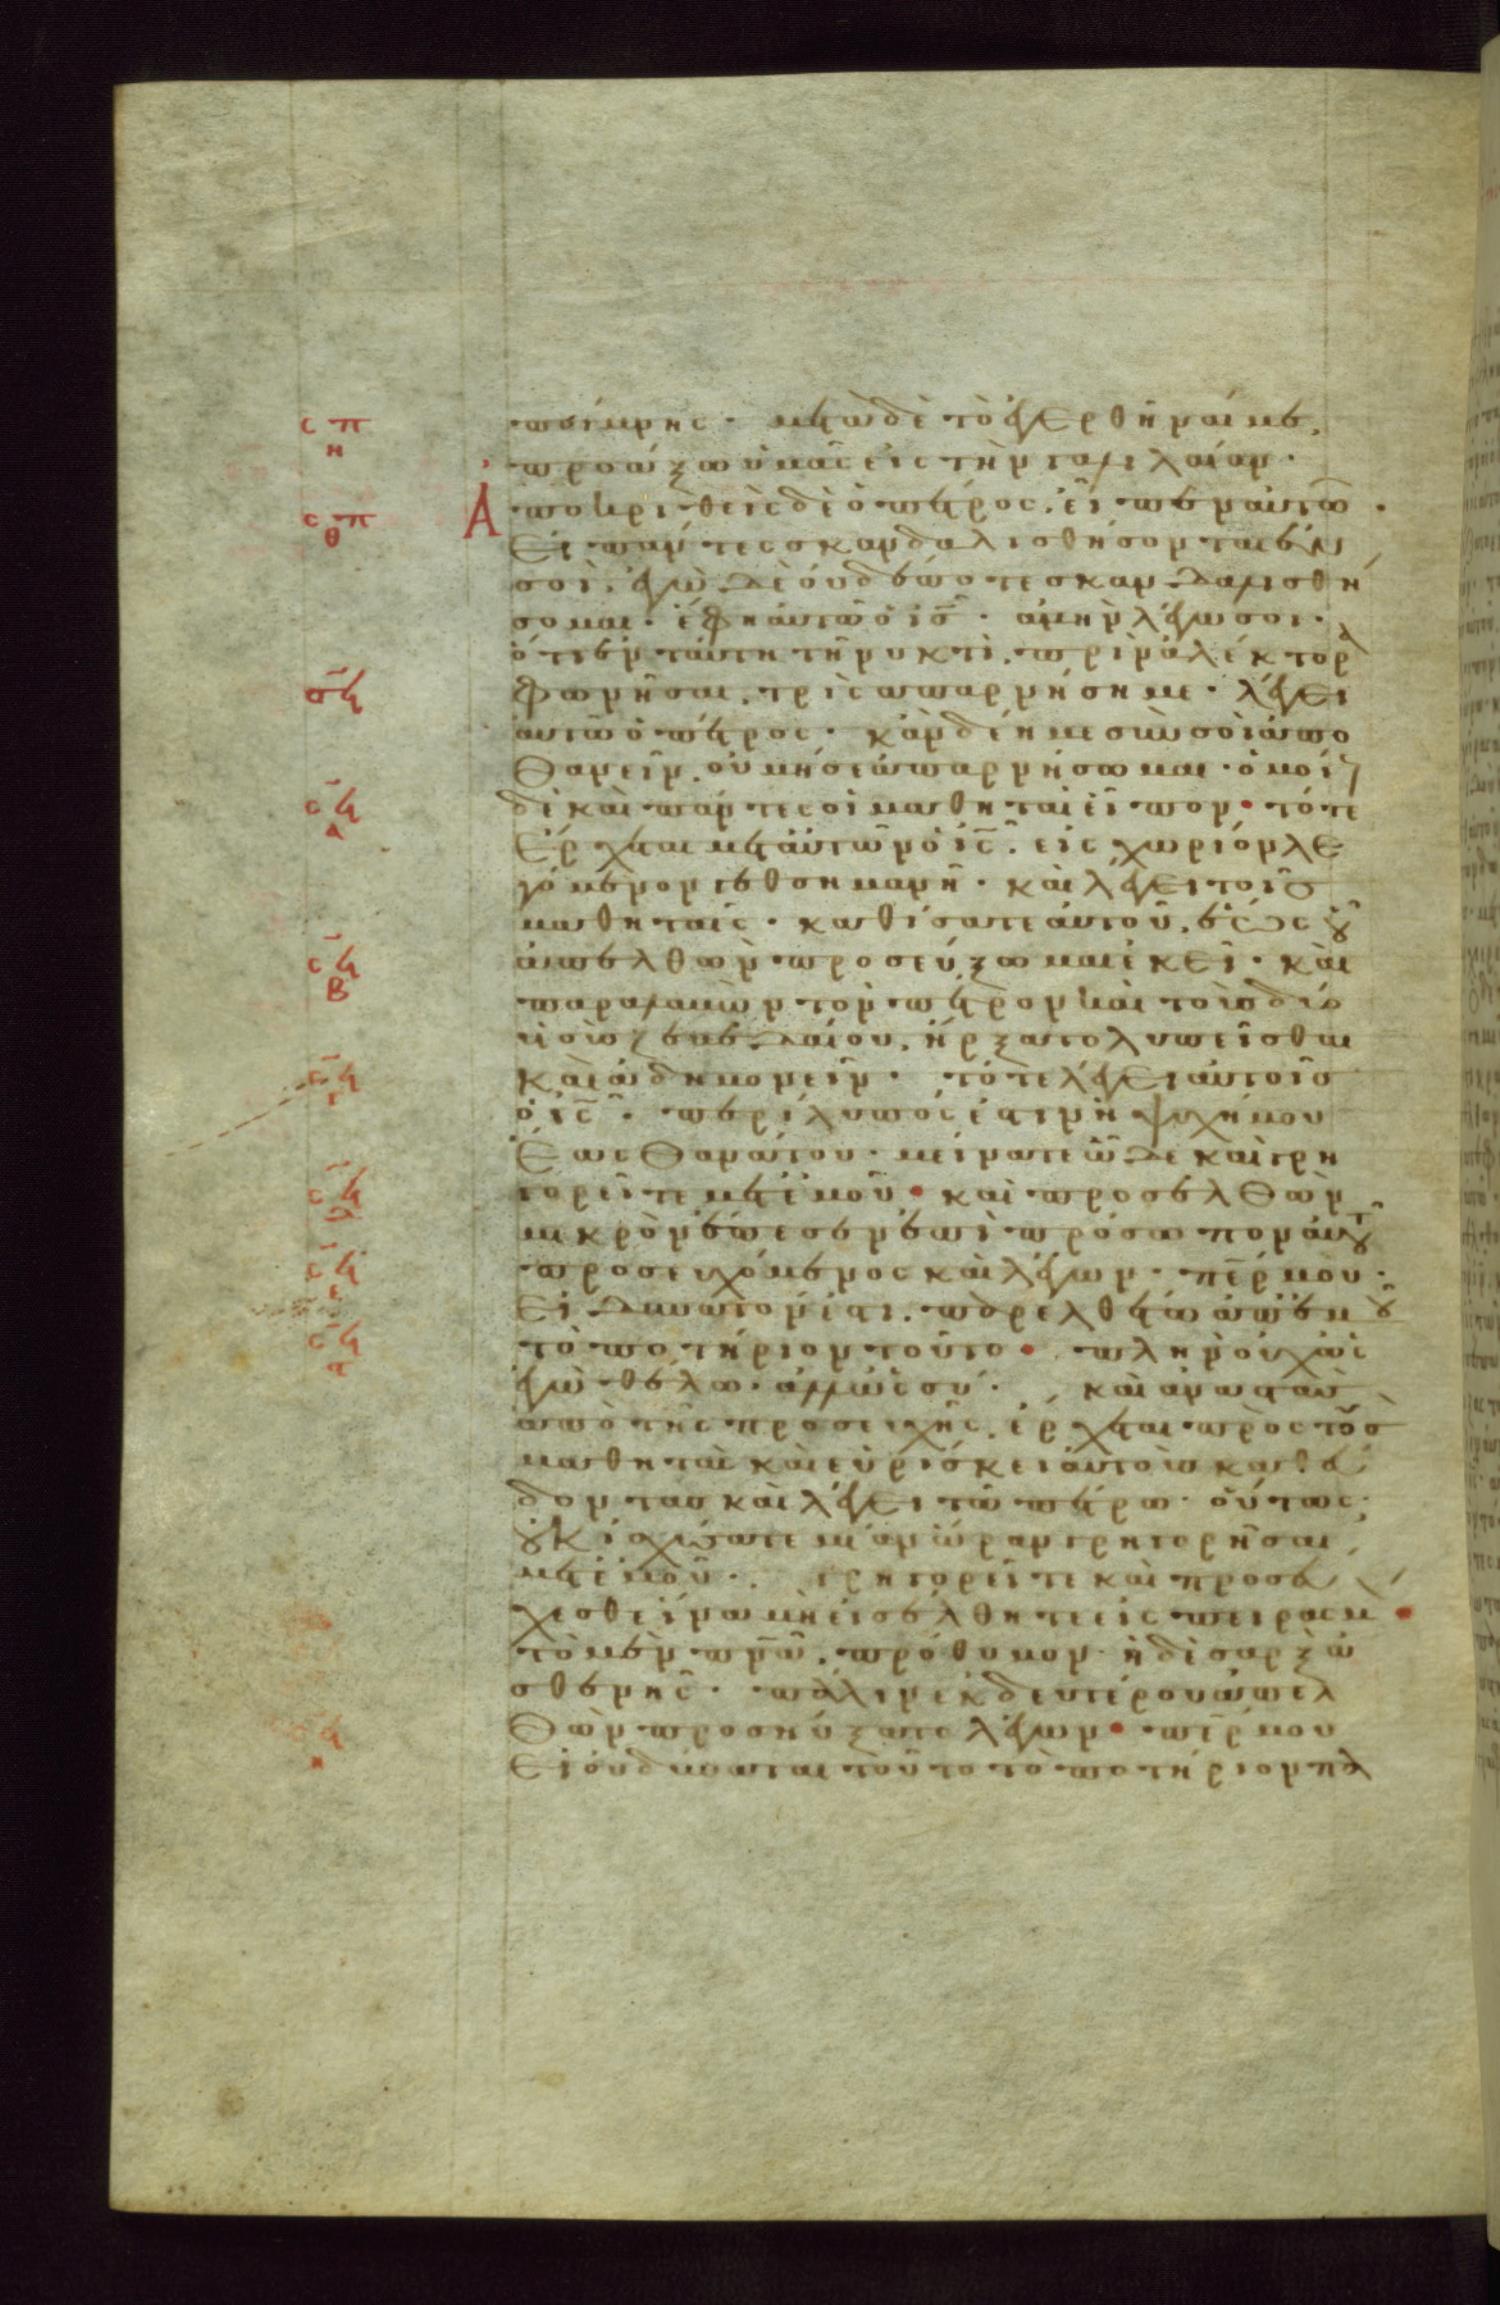 ποίμνης. μετὰ δὲ τὸ ἐγερθῆναί με,
προάξω ὑμᾶς εἰς τὴν γαλιλαίαν.
Ἀποκριθεὶς δὲ ὁ πέτρος, εἶπεν αὐτῶ.
Εἰ πάντες σκανδαλισθήσονται ἐν
σοὶ, ἐγὼ δὲ οὐδέποτε σκανδαλισθή
σομαι. ἔφη αὐτῶ ὁ ἰς̅. ἀμὴν λέγω σοι.
ὅτι ἐν ταύτη τῆ νυκτὶ, πρὶν ἀλέκτορα
φωνῆσαι, τρὶς ἀπαρνήση με. λέγει
αὐτῶ ὁ πέτρος. κἂν δέη με σὺν σοὶ ἀπο
θανεῖν, οὐ μή σε ἀπαρνήσωμαι. ὁμοί
δὲ καὶ πάντες οἱ μαθηταὶ εἶπον. τότε
Ἔρχεται μετ αὐτῶν ὁ ἰς̅. εἰς χωρίον λε
γόμενον γεθσημανῆ. καὶ λέγει τοῖς
μαθηταῖς. καθίσατε αὐτοῦ, ἕως οὗ
ἀπελθὼν προσεύξωμαι ἐκεῖ. καὶ
παραλαβὼν τὸν πέτρον καὶ τοὺς δύο
υἱοὺς ζεβεδαίου, ἤρξατο λυπεῖσθαι
καὶ ἀδημονεῖν. τότε λέγει αὐτοῖς
ὁ ἰς̅. περίλυπός ἐστιν ἡ ψυχή μου
Ἕως θανάτου. μείνατε ὧδε καὶ γρη
γορεῖτε μετ ἐμοῦ. καὶ προσελθὼν
μικρὸν ἔπεσεν ἐπὶ πρόσωπον αὐτοῦ
προσευχόμενος καὶ λέγων. πε̅ρ μου.
Εἰ δυνατόν ἐστι. παρελθέτω ἀπ ἐμοῦ
τὸ ποτήριον τοῦτο. πλὴν οὐχ ὡς
ἐγὼ θέλω. ἀλλ ὡς σύ. καὶ ἀναστὰς
ἀπὸ τῆς προσευχῆς, ἔρχεται πρὸς τοὺς
μαθητὰς καὶ εὑρίσκει αὐτοὺς καθεύ
δοντας καὶ λέγει τῶ πέτρω. οὕτως
οὐκ ἰσχύσατε μίαν ὥραν γρηγορῆσαι
μετ ἐμοῦ. γρηγορεῖτε καὶ προσεύ
χεσθε ἵνα μὴ εἰσέλθητε εἰς πειρασμ
τὸ μὲν πνα̅, πρόθυμον. ἡ δὲ σὰρξ ἀ
σθενής. πάλιν ἐκ δευτέρου ἀπελ
θὼν προσηύξατο λέγων. πε̅ρ μου
Εἰ οὐ δύναται τοῦτο τὸ ποτήριον παλ